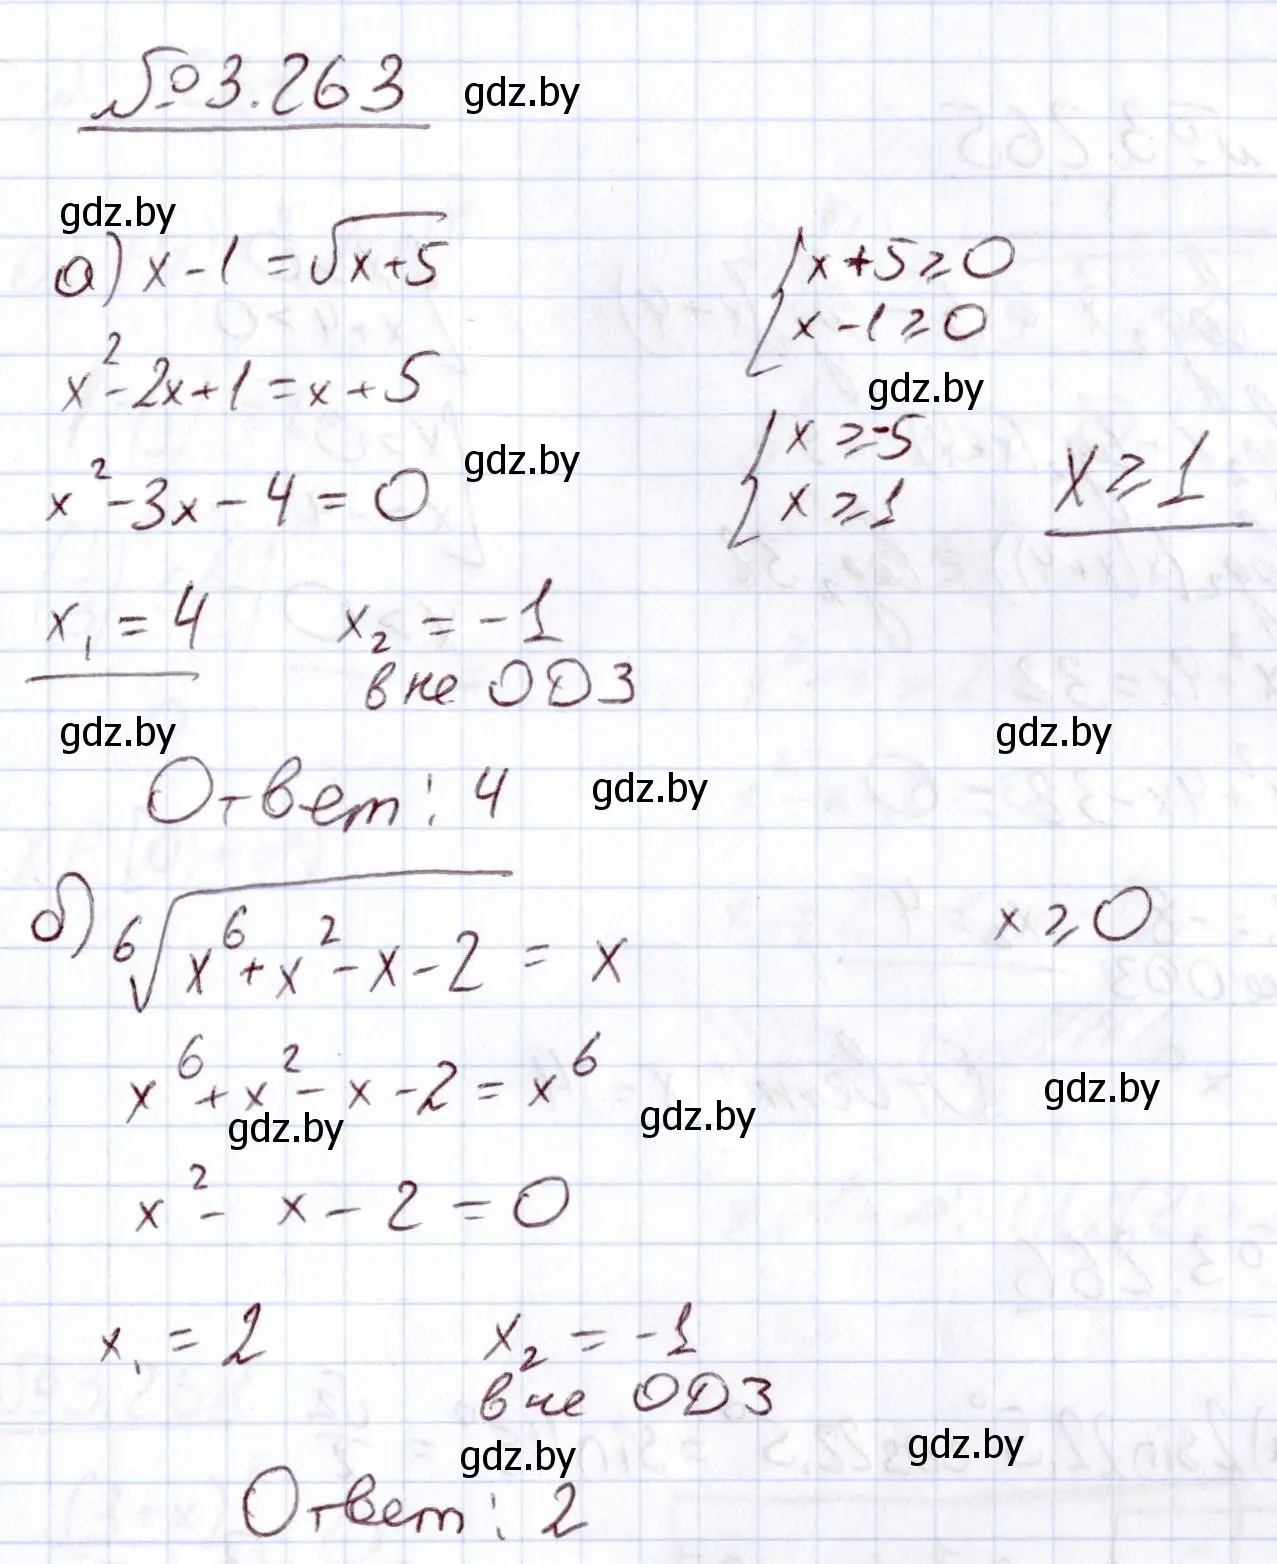 №3.263 gdz.by
gdz.by
а) x-1=√x+5
{x+5≥0
{x-1≥0
x²-2x+1=x+5
gdz.by
{x≥-5
{x≥1
x≥1
gdz.by
x²-3x-4=0
x₁=4 x₂=-1
вне ОДЗ
gdz.by gdz.by
Ответ: 4 gdz.by
б) ⁶√x⁶+x²-x-2 = x x≥0
x⁶+x²-x-2=x⁶ gdz.by
gdz.by gdz.by
x²-x-2=0
x₁=2 x₂=-1
вне ОДЗ
gdz.by gdz.by
Ответ: 2